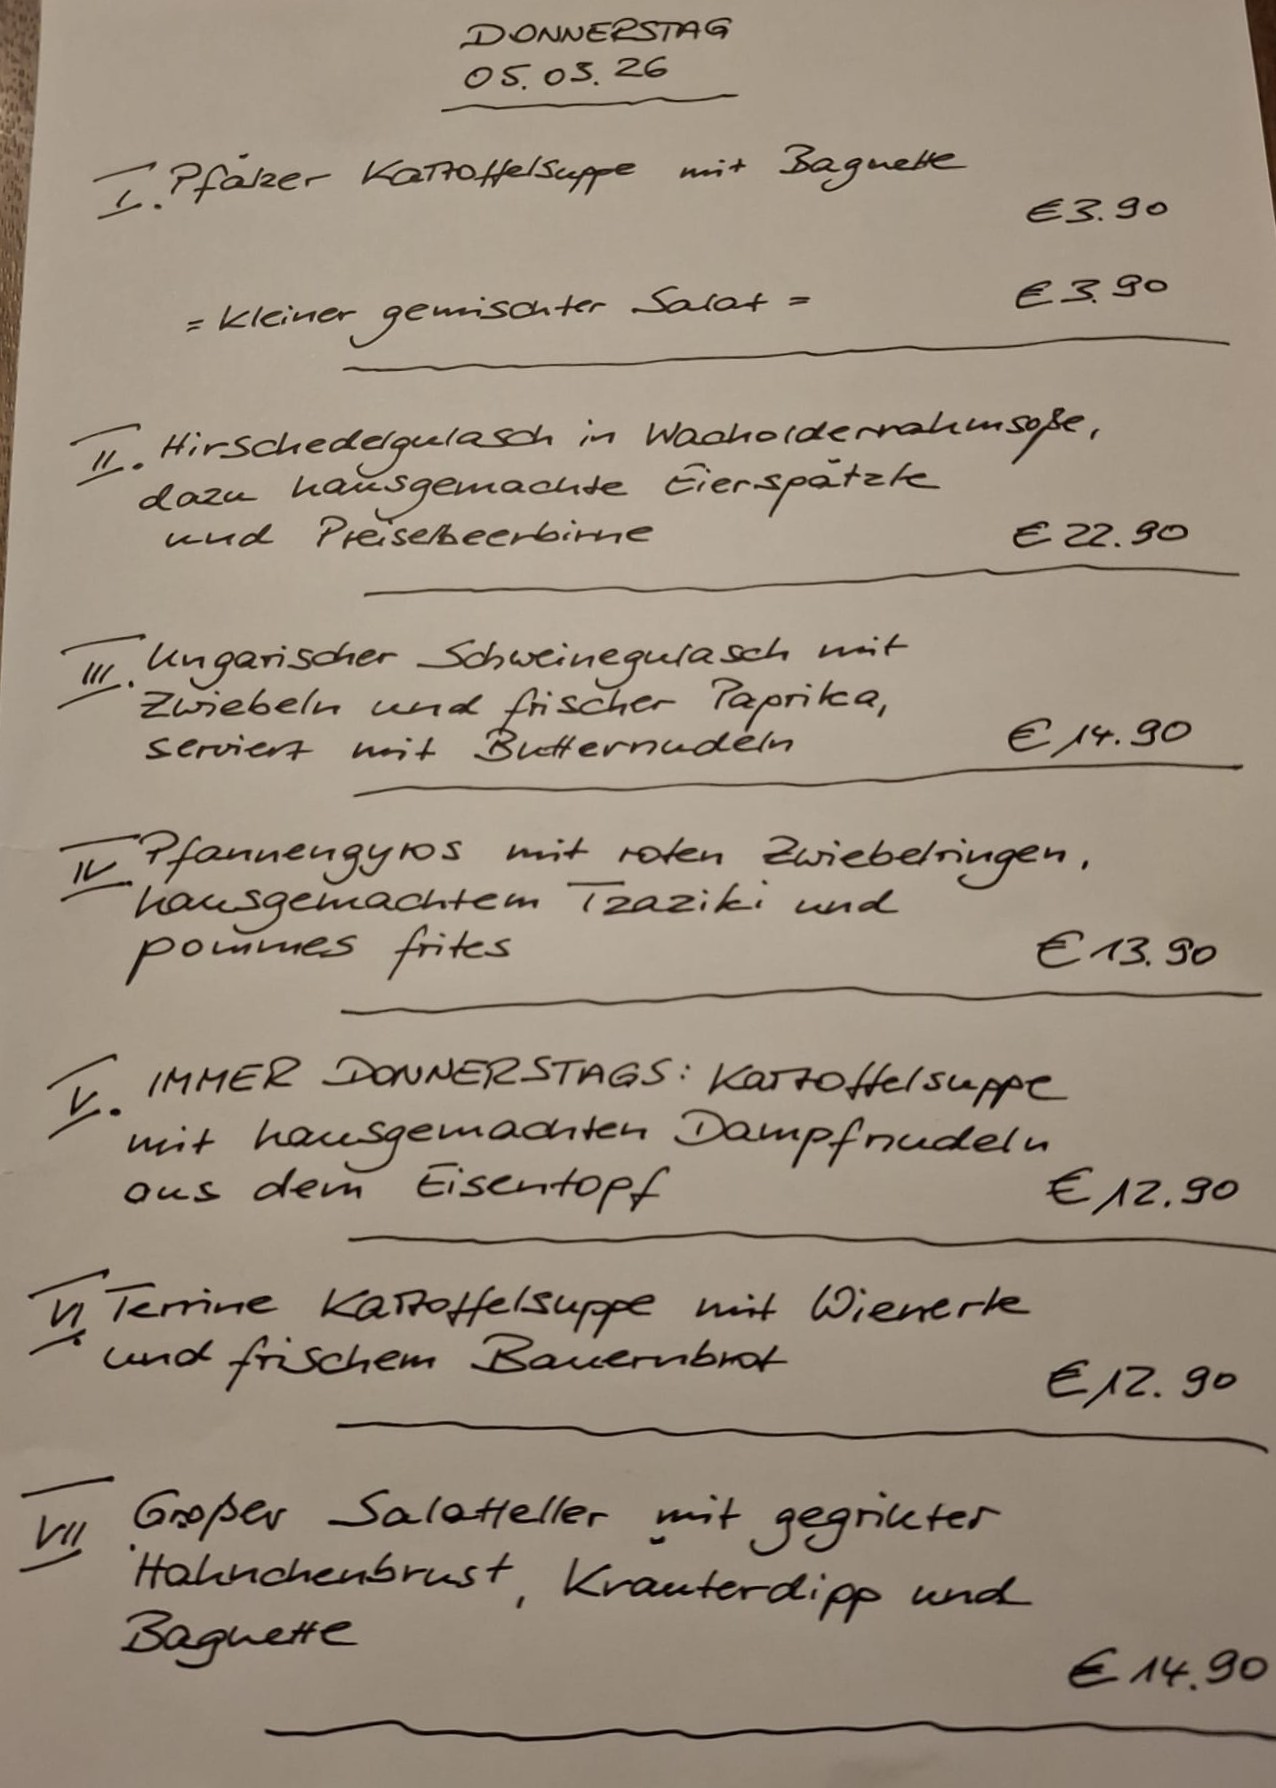 DONNERSTAG
05.03.26
I. Pfälzer Kartoffelsuppe mit Baguette
€3.90
= Kleiner gemischter Salat = €3.90
II. Hirschedelgulasch in Wacholderrahmsoße,
dazu hausgemachte Eierspätzle
und Preiselbeerbirne €22.90
III. Ungarischer Schweinegulasch mit
Zwiebeln und frischer Paprika,
serviert mit Butternudeln € 14.90
IV Pfannengyros mit roten Zwiebelringen,
hausgemachtem Tzaziki und
pommes frites € 13.90
V. IMMER DONNERSTAGS: Kartoffelsuppe
mit hausgemachten Dampfnudeln
aus dem Eisentopf € 12.90
VI. Terrine Kartoffelsuppe mit Wienerle
und frischem Bauernbrot
€12.90
VII Großer Salatteller mit gegrillter
Hähnchenbrust, Kräuterdipp und
Baguette
€ 14.90